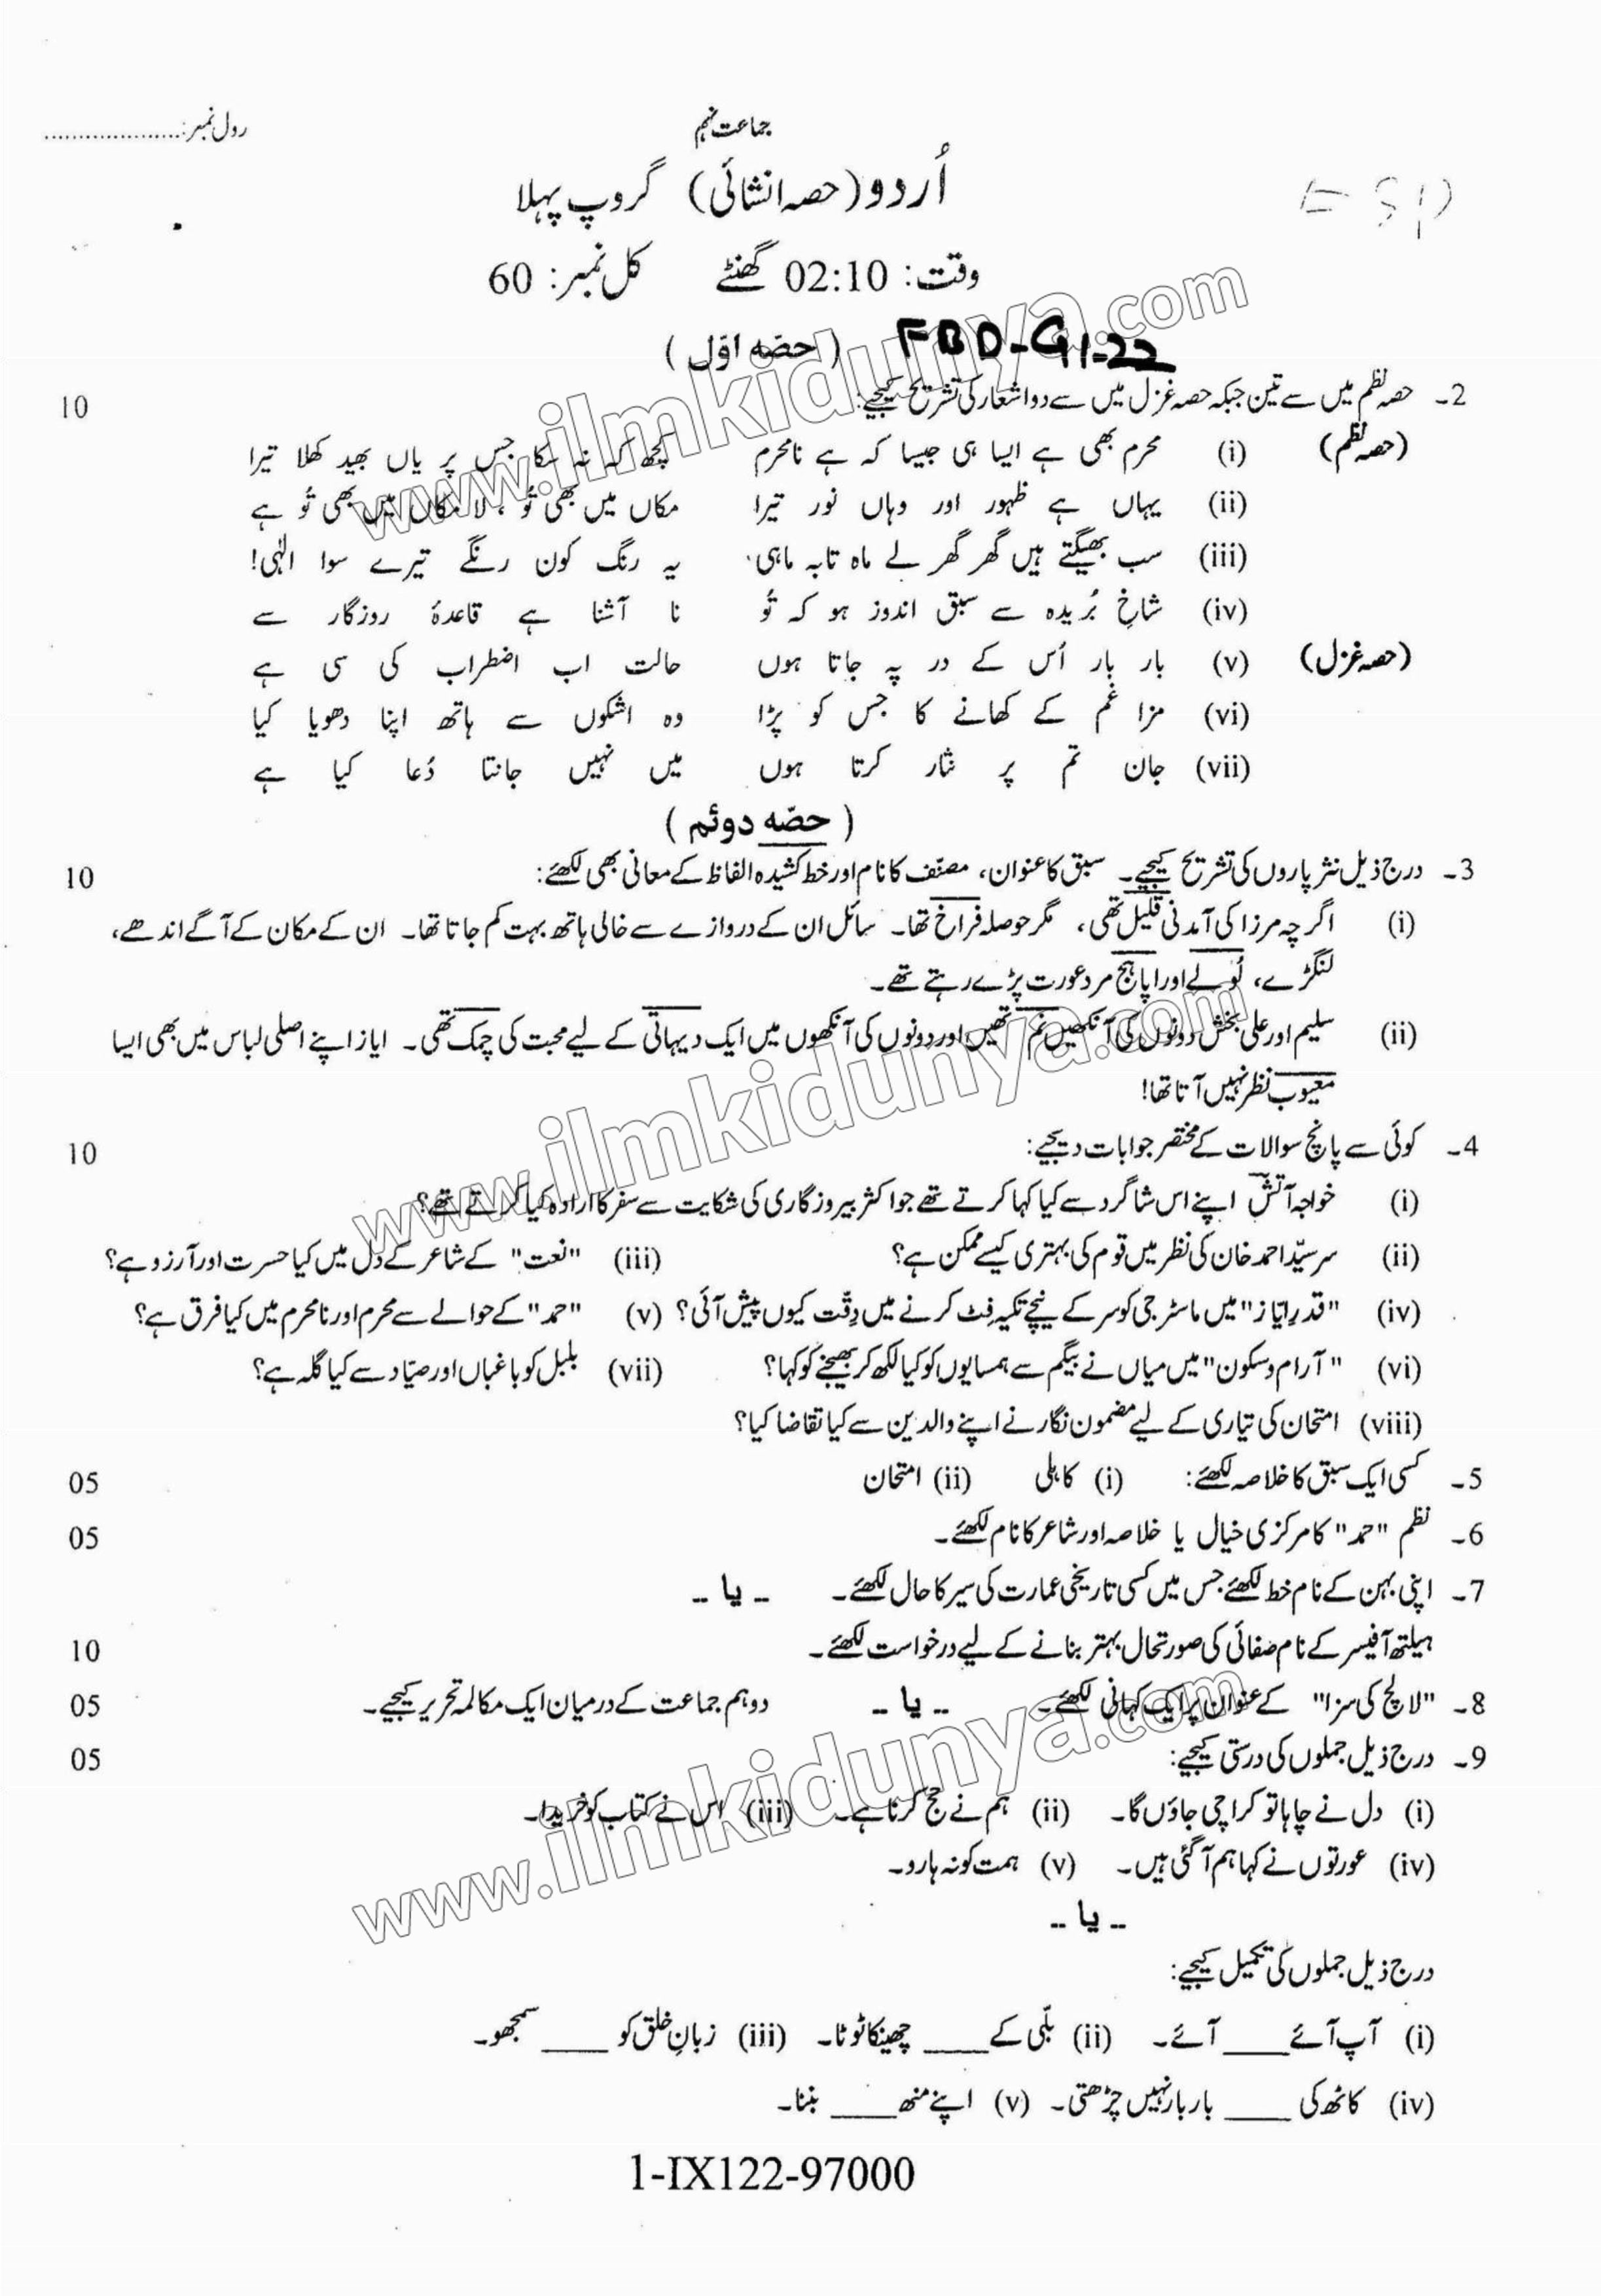 جماعت نہم
رول نمبر:....................
اُردو (حصہ انشائی) گروپ پہلا
وقت: 02:10 گھنٹے کل نمبر: 60
(حصّہ اوّل) FBD-G1-22
2۔ حصہ نظم میں سے تین جبکہ حصہ غزل میں سے دو اشعار کی تشریح کیجیے: 10
(حصہ نظم) (i) محرم بھی ہے ایسا ہی جیسا کہ ہے نامحرم کچھ کہہ نہ سکا جس پر یاں بھید کھلا تیرا
(ii) یہاں ہے ظہور اور وہاں نور تیرا مکاں میں بھی تُو ، لا مکاں میں بھی تُو ہے
(iii) سب بھیگتے ہیں گھر گھر لے ماہ تابہ ماہی یہ رنگ کون رنگے تیرے سوا الٰہی!
(iv) شاخِ بُریدہ سے سبق اندوز ہو کہ تُو نا آشنا ہے قاعدۂ روزگار سے
(حصہ غزل) (v) بار بار اُس کے در پہ جاتا ہوں حالت اب اضطراب کی سی ہے
(vi) مزا غم کے کھانے کا جس کو پڑا وہ اشکوں سے ہاتھ اپنا دھویا کیا
(vii) جان تم پر نثار کرتا ہوں میں نہیں جانتا دُعا کیا ہے
(حصّہ دوئم)
3۔ درج ذیل نثر پاروں کی تشریح کیجیے۔ سبق کا عنوان، مصنّف کا نام اور خط کشیدہ الفاظ کے معانی بھی لکھئے: 10
(i) اگرچہ مرزا کی آمدنی قلیل تھی، مگر حوصلہ فراخ تھا۔ سائل ان کے دروازے سے خالی ہاتھ بہت کم جاتا تھا۔ ان کے مکان کے آگے اندھے،
لنگڑے، لُولے اور اپاہج مرد عورت پڑے رہتے تھے۔
(ii) سلیم اور علی بخش دونوں کی آنکھیں نم تھیں اور دونوں کی آنکھوں میں ایک دیہاتی کے لیے محبت کی چمک تھی۔ ایاز اپنے اصلی لباس میں بھی ایسا
معیوب نظر نہیں آتا تھا!
4۔ کوئی سے پانچ سوالات کے مختصر جوابات دیجیے: 10
(i) خواجہ آتشؔ اپنے اس شاگرد سے کیا کہا کرتے تھے جو اکثر بیروزگاری کی شکایت سے سفر کا ارادہ کیا کرتے تھے؟
(ii) سر سیّد احمد خان کی نظر میں قوم کی بہتری کیسے ممکن ہے؟ (iii) "نعت" کے شاعر کے دل میں کیا حسرت اور آرزو ہے؟
(iv) "قدرِ ایاز" میں ماسٹر جی کو سر کے نیچے تکیہ فٹ کرنے میں دِقّت کیوں پیش آئی؟ (v) "حمد" کے حوالے سے محرم اور نامحرم میں کیا فرق ہے؟
(vi) "آرام و سکون" میں میاں نے بیگم سے ہمسایوں کو کیا لکھ کر بھیجنے کو کہا؟ (vii) بلبل کو باغباں اور صیّاد سے کیا گلہ ہے؟
(viii) امتحان کی تیاری کے لیے مضمون نگار نے اپنے والدین سے کیا تقاضا کیا؟
5۔ کسی ایک سبق کا خلاصہ لکھئے: (i) کاہلی (ii) امتحان 05
6۔ نظم "حمد" کا مرکزی خیال یا خلاصہ اور شاعر کا نام لکھئے۔ 05
7۔ اپنی بہن کے نام خط لکھئے جس میں کسی تاریخی عمارت کی سیر کا حال لکھئے۔ -- یا --
ہیلتھ آفیسر کے نام صفائی کی صورتحال بہتر بنانے کے لیے درخواست لکھئے۔ 10
8۔ "لالچ کی سزا" کے عنوان پر ایک کہانی لکھئے۔ -- یا -- دو ہم جماعت کے درمیان ایک مکالمہ تحریر کیجیے۔ 05
9۔ درج ذیل جملوں کی درستی کیجیے: 05
(i) دل نے چاہا تو کراچی جاؤں گا۔ (ii) ہم نے حج کرنا ہے۔ (iii) اس نے کتاب کو خریدا۔
(iv) عورتوں نے کہا ہم آ گئی ہیں۔ (v) ہمت کو نہ ہارو۔
-- یا --
درج ذیل جملوں کی تکمیل کیجیے:
(i) آپ آئے ____ آئے۔ (ii) بلّی کے ____ چھینکا ٹوٹا۔ (iii) زبانِ خلق کو ____ سمجھو۔
(iv) کاٹھ کی ____ بار بار نہیں چڑھتی۔ (v) اپنے منھ ____ بننا۔
1-IX122-97000
www.ilmkidunya.com
www.ilmkidunya.com
www.ilmkidunya.com